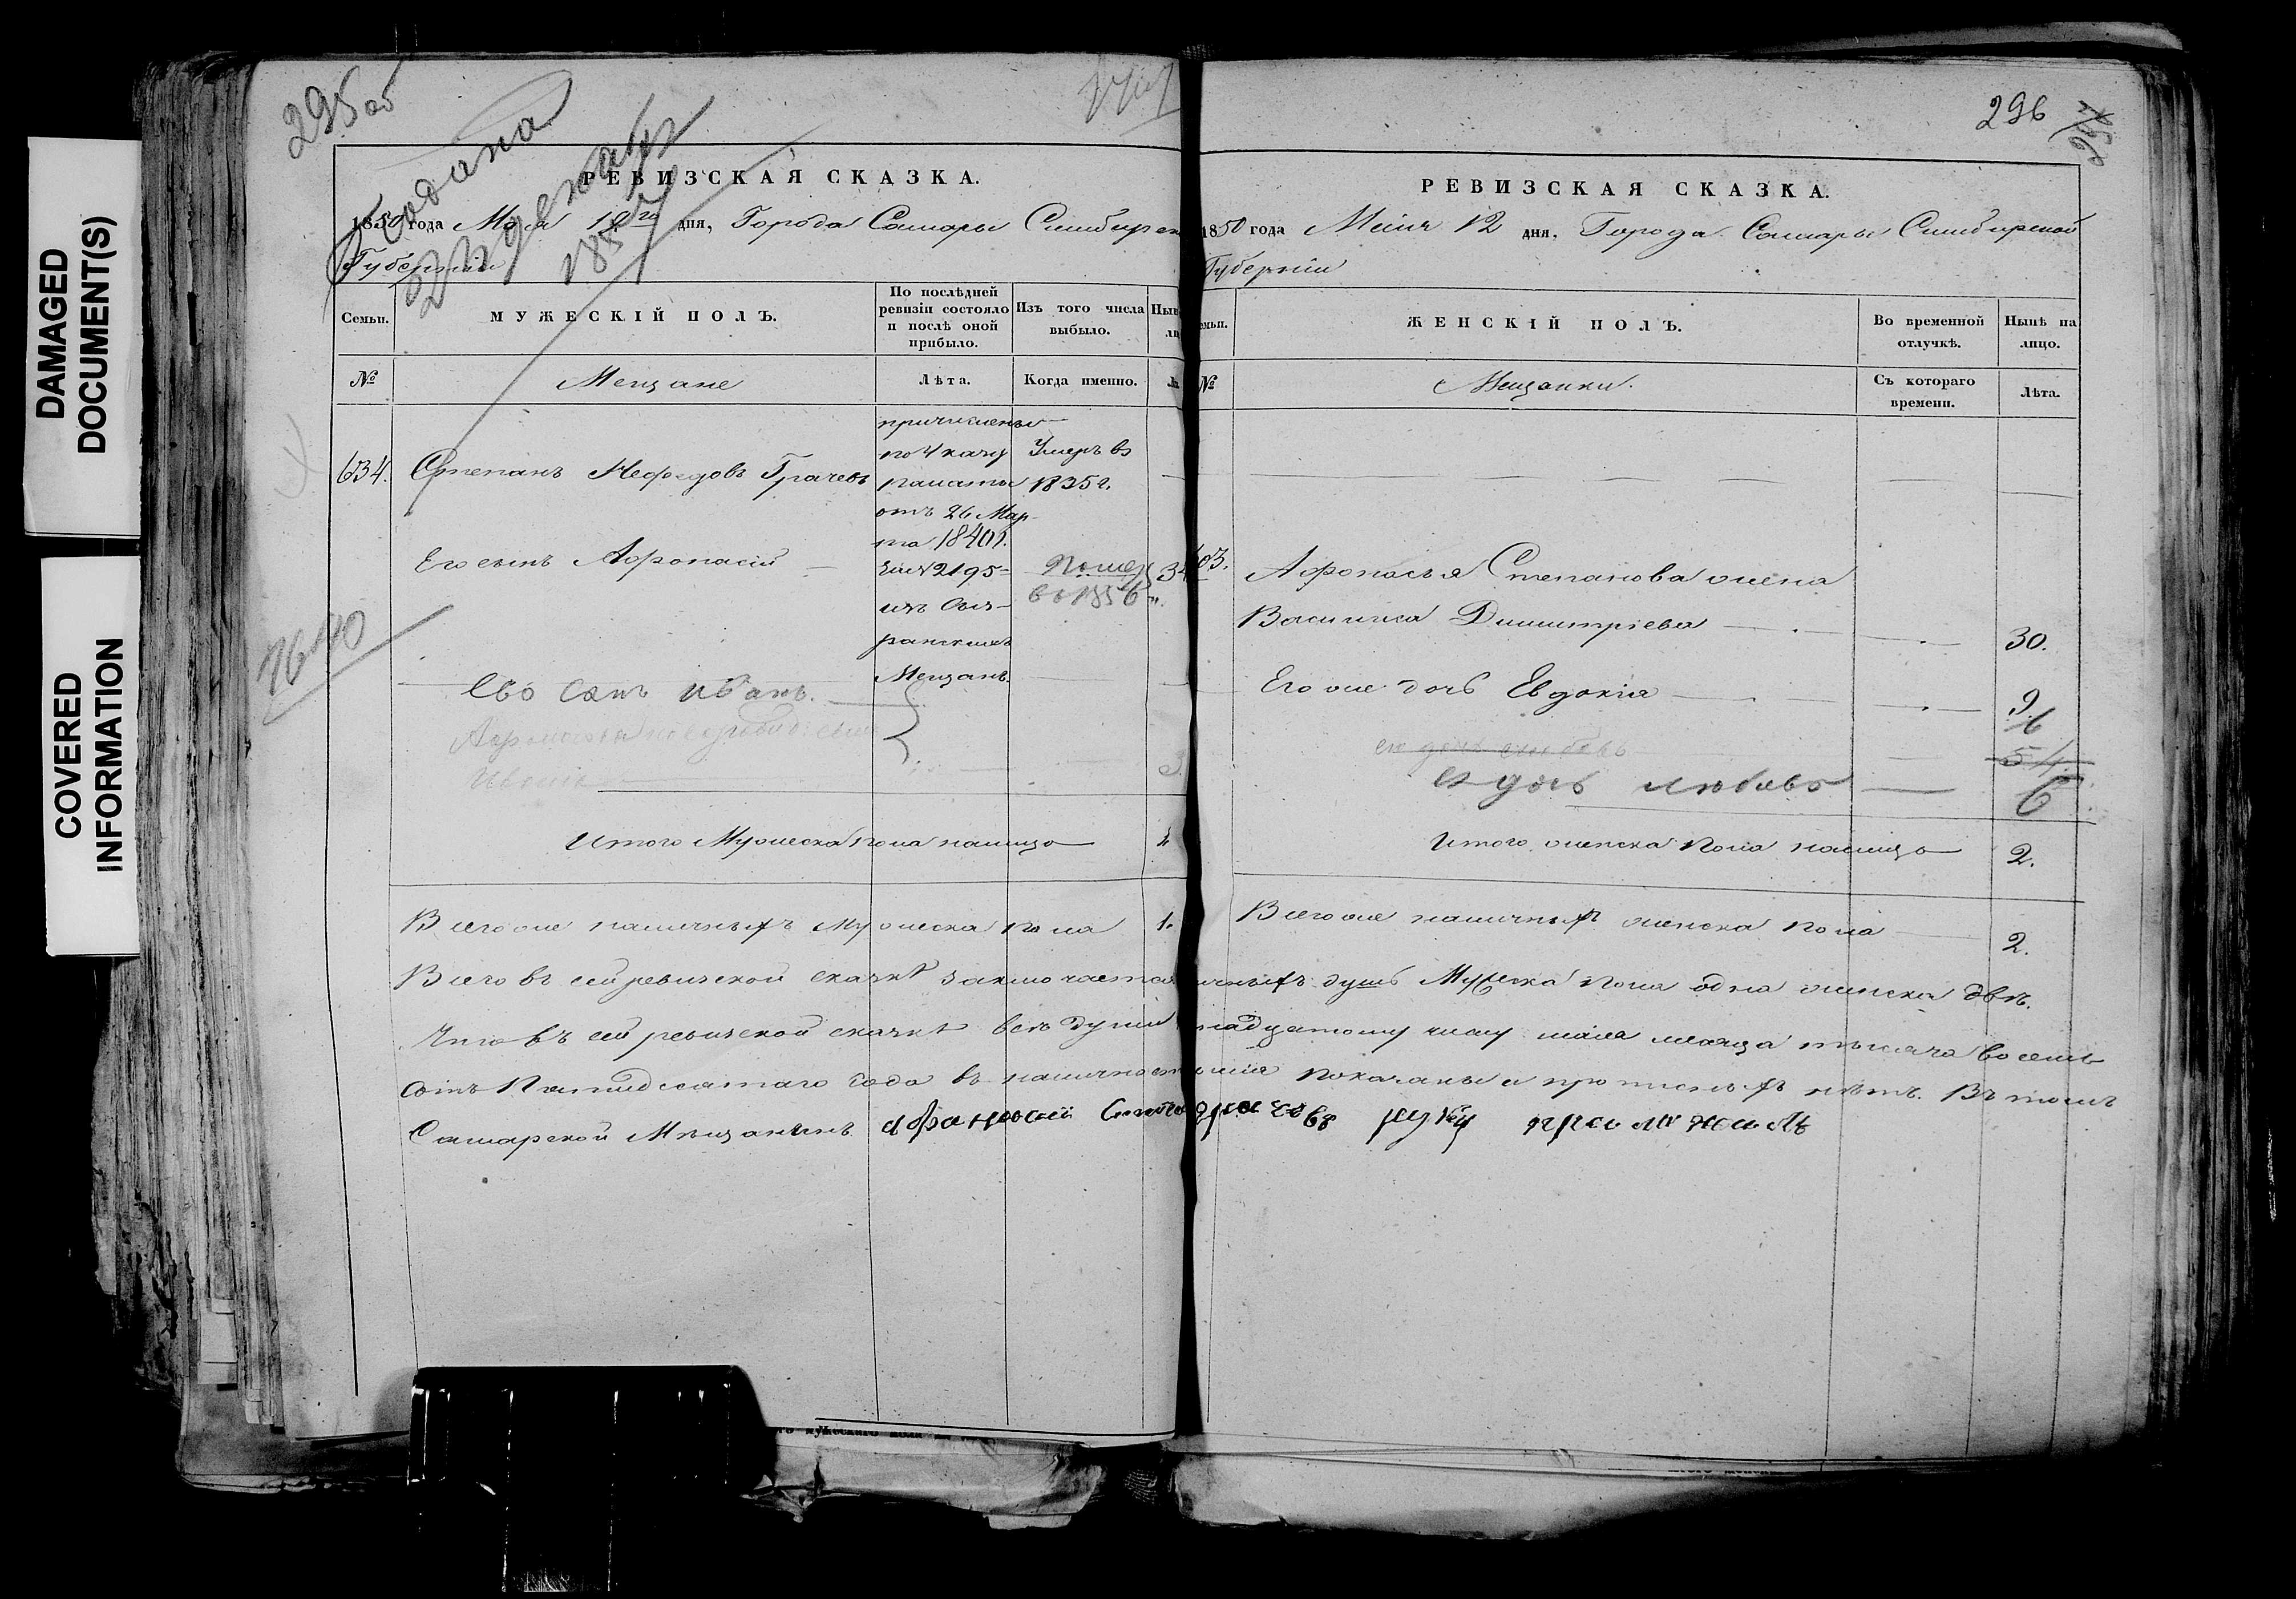 DAMAGED
DOCUMENT(S)
COVERED
INFORMATION
295 об
Подана
22 декабр
1857
РЕВИЗСКАЯ СКАЗКА.
1850 года Мая 12го дня, Города Самары Симбирск
Губернии
Семьи.
МУЖЕСКІЙ ПОЛЪ.
По послѣдней
ревизіи состояло
и послѣ оной
прибыло.
Изъ того числа
выбыло.
№
Мещане
Лѣта.
Когда именно.
634.
Степанъ Нефедовъ Грачевъ
причислены
по Указу
палаты
отъ 26 Мар-
та 1840 г.
за № 2195
изъ Сыз-
ранскихъ
Мещанъ.
Умеръ въ
1835 г.
Его сынъ Афонасій
Помер
в 1856
34
1640
Ево сынъ Иванъ.
3.
Итого Мужеска пола налицо
Всего же наличныхъ мужеска пола 1.
296
РЕВИЗСКАЯ СКАЗКА.
1850 года Маія 12 дня, Города Самары Симбирской
Губерніи
ЖЕНСКІЙ ПОЛЪ.
Во временной
отлучкѣ.
Нынѣ на
лицо.
№
Мещанки.
Съ котораго
времени.
Лѣта.
Афонасья Степанова жена
Василиса Димитріева 30.
Его же дочь Евдокія 9.
6
его дочь любовь
5
ея дочь любовь 6
Итого женска пола налицо 2.
Всего же наличныхъ женска пола 2.
Всего въ сей ревизской сказкѣ заключается наличныхъ душъ Мужеска пола одна женска двѣ.
Что въ сей ревизской сказкѣ всѣ души надцатому числу маія месяца тысяча восемь
сотъ Пятидесятаго года въ наличности показаны и прописныхъ нѣтъ. Въ томъ
Самарской Мѣщанинъ Афанасий Степ Грачевъ руку приложилъ